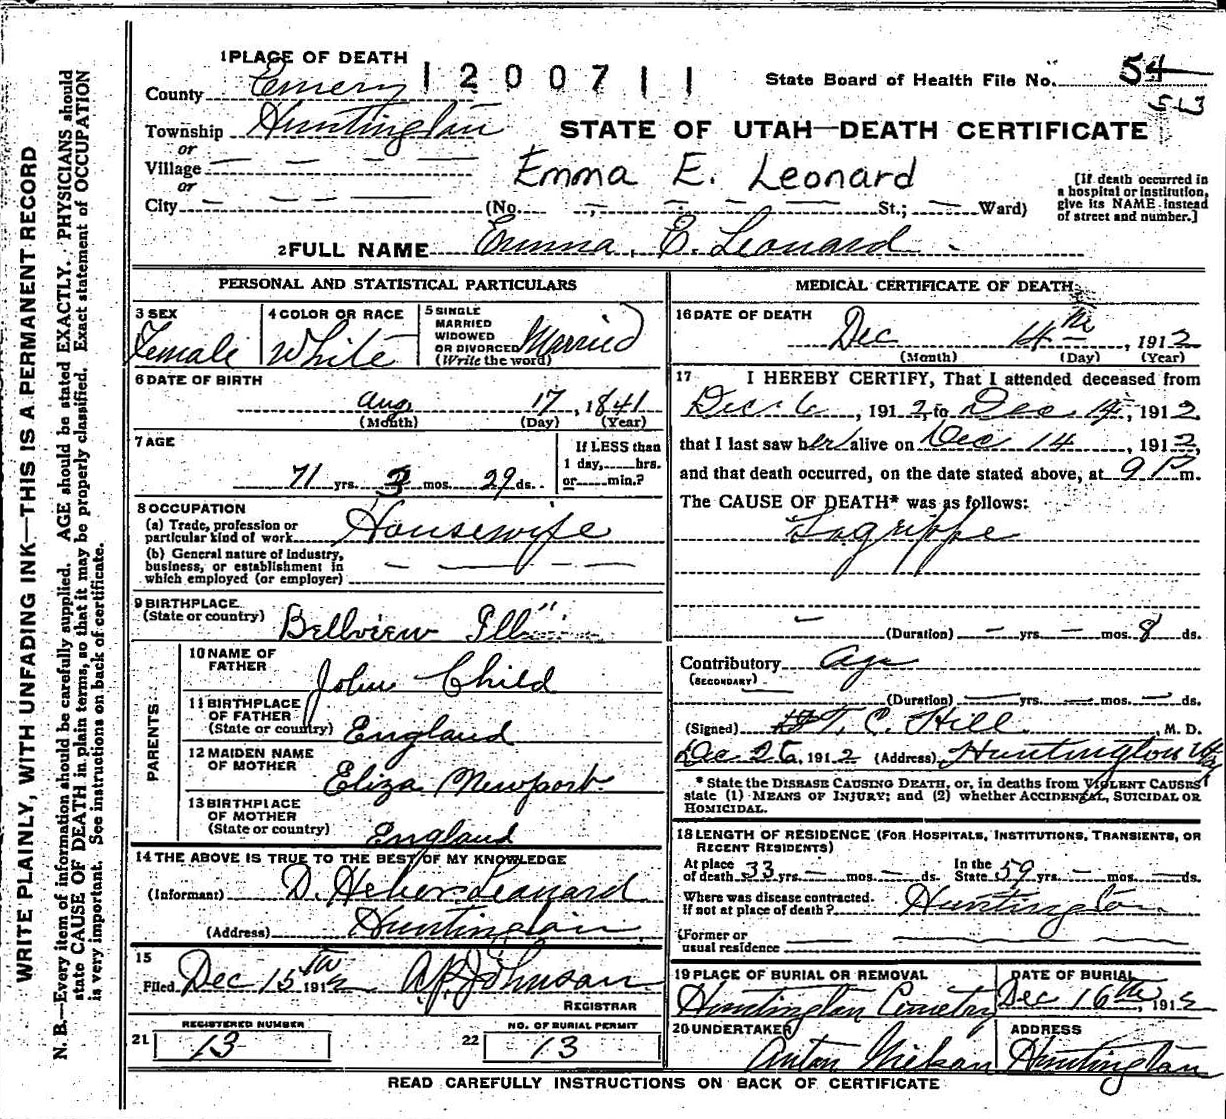 1 PLACE OF DEATH
1200711
State Board of Health File No. 54
513
County Emery
Township Huntington
or
Village
or
City
STATE OF UTAH—DEATH CERTIFICATE
Emma E. Leonard
(No. St.; Ward)
[If death occurred in
a hospital or institution,
give its NAME instead
of street and number.]
2 FULL NAME Emma E. Leonard
PERSONAL AND STATISTICAL PARTICULARS
3 SEX
Female
4 COLOR OR RACE
White
5 SINGLE
MARRIED
WIDOWED
OR DIVORCED
(Write the word)
Married
6 DATE OF BIRTH
Aug. 17, 1841
(Month) (Day) (Year)
7 AGE
71 yrs. 3 mos. 29 ds.
If LESS than
1 day, hrs.
or min.?
8 OCCUPATION
(a) Trade, profession or
particular kind of work Housewife
(b) General nature of industry,
business, or establishment in
which employed (or employer)
9 BIRTHPLACE
(State or country)
Bellview Ill
PARENTS
10 NAME OF
FATHER
John Child
11 BIRTHPLACE
OF FATHER
(State or country) England
12 MAIDEN NAME
OF MOTHER
Eliza Newport
13 BIRTHPLACE
OF MOTHER
(State or country) England
14 THE ABOVE IS TRUE TO THE BEST OF MY KNOWLEDGE
(Informant) D. Heber Leonard
(Address) Huntington
15
Filed Dec 15th 1912
REGISTRAR
21 REGISTERED NUMBER
13
22 NO. OF BURIAL PERMIT
13
MEDICAL CERTIFICATE OF DEATH
16 DATE OF DEATH
Dec 14th, 1912
(Month) (Day) (Year)
17 I HEREBY CERTIFY, That I attended deceased from
Dec. 6, 1912, to Dec 14, 1912.
that I last saw her alive on Dec 14, 1912,
and that death occurred, on the date stated above, at 9 P m.
The CAUSE OF DEATH* was as follows:
Lagrippe
(Duration) yrs. mos. 8 ds.
Contributory Age
(SECONDARY)
(Duration) yrs. mos. ds.
(Signed) T. C. Hill M. D.
Dec 26, 1912 (Address) Huntington Utah
* State the DISEASE CAUSING DEATH, or, in deaths from VIOLENT CAUSES
state (1) MEANS OF INJURY; and (2) whether ACCIDENTAL, SUICIDAL OR
HOMICIDAL.
18 LENGTH OF RESIDENCE (FOR HOSPITALS, INSTITUTIONS, TRANSIENTS, OR
RECENT RESIDENTS)
At place
of death 33 yrs. mos. ds.
In the
State 59 yrs. mos. ds.
Where was disease contracted.
if not at place of death? Huntington
(Former or
usual residence
19 PLACE OF BURIAL OR REMOVAL
Huntington Cemetry
DATE OF BURIAL
Dec 16th, 1912
20 UNDERTAKER
Anton
ADDRESS
Huntington
READ CAREFULLY INSTRUCTIONS ON BACK OF CERTIFICATE
WRITE PLAINLY, WITH UNFADING INK—THIS IS A PERMANENT RECORD
N. B.—Every item of information should be carefully supplied. AGE should be stated EXACTLY. PHYSICIANS should
state CAUSE OF DEATH in plain terms, so that it may be properly classified. Exact statement of OCCUPATION
is very important. See instructions on back of certificate.